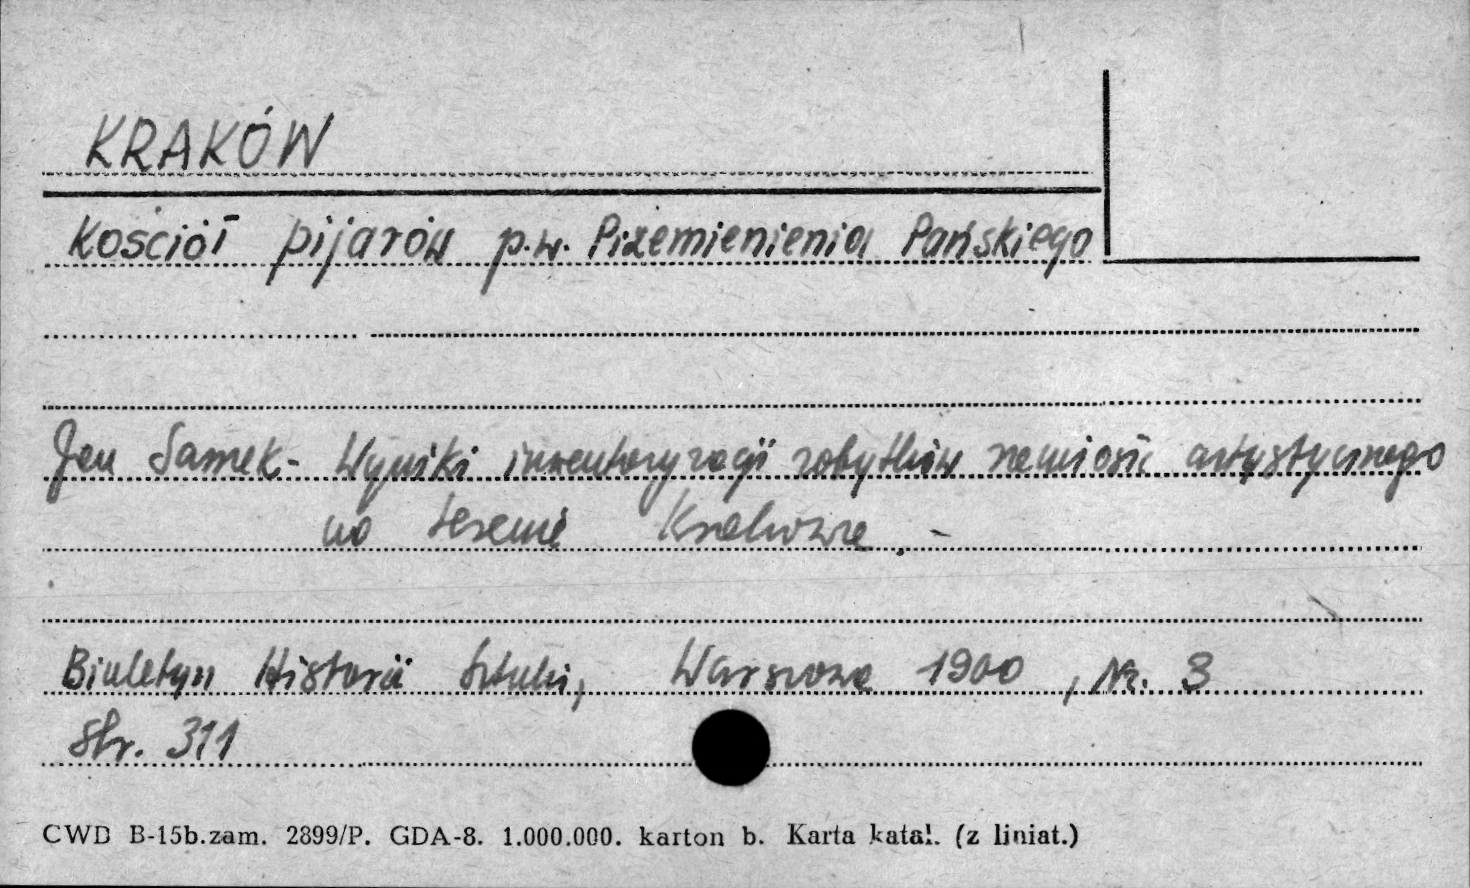 KRAKÓW
Kościół pijarów p.w. Przemienienia Pańskiego
Jan Samek - Wyniki inwentaryzacji zabytków rzemiosła artystycznego
na terenie Krakowa. -
Biuletyn Historii Sztuki, Warszawa 1900, Nr. 3
Str. 311
CWD B-15b.zam. 2899/P. GDA-8. 1.000.000. karton b. Karta katal. (z liniat.)